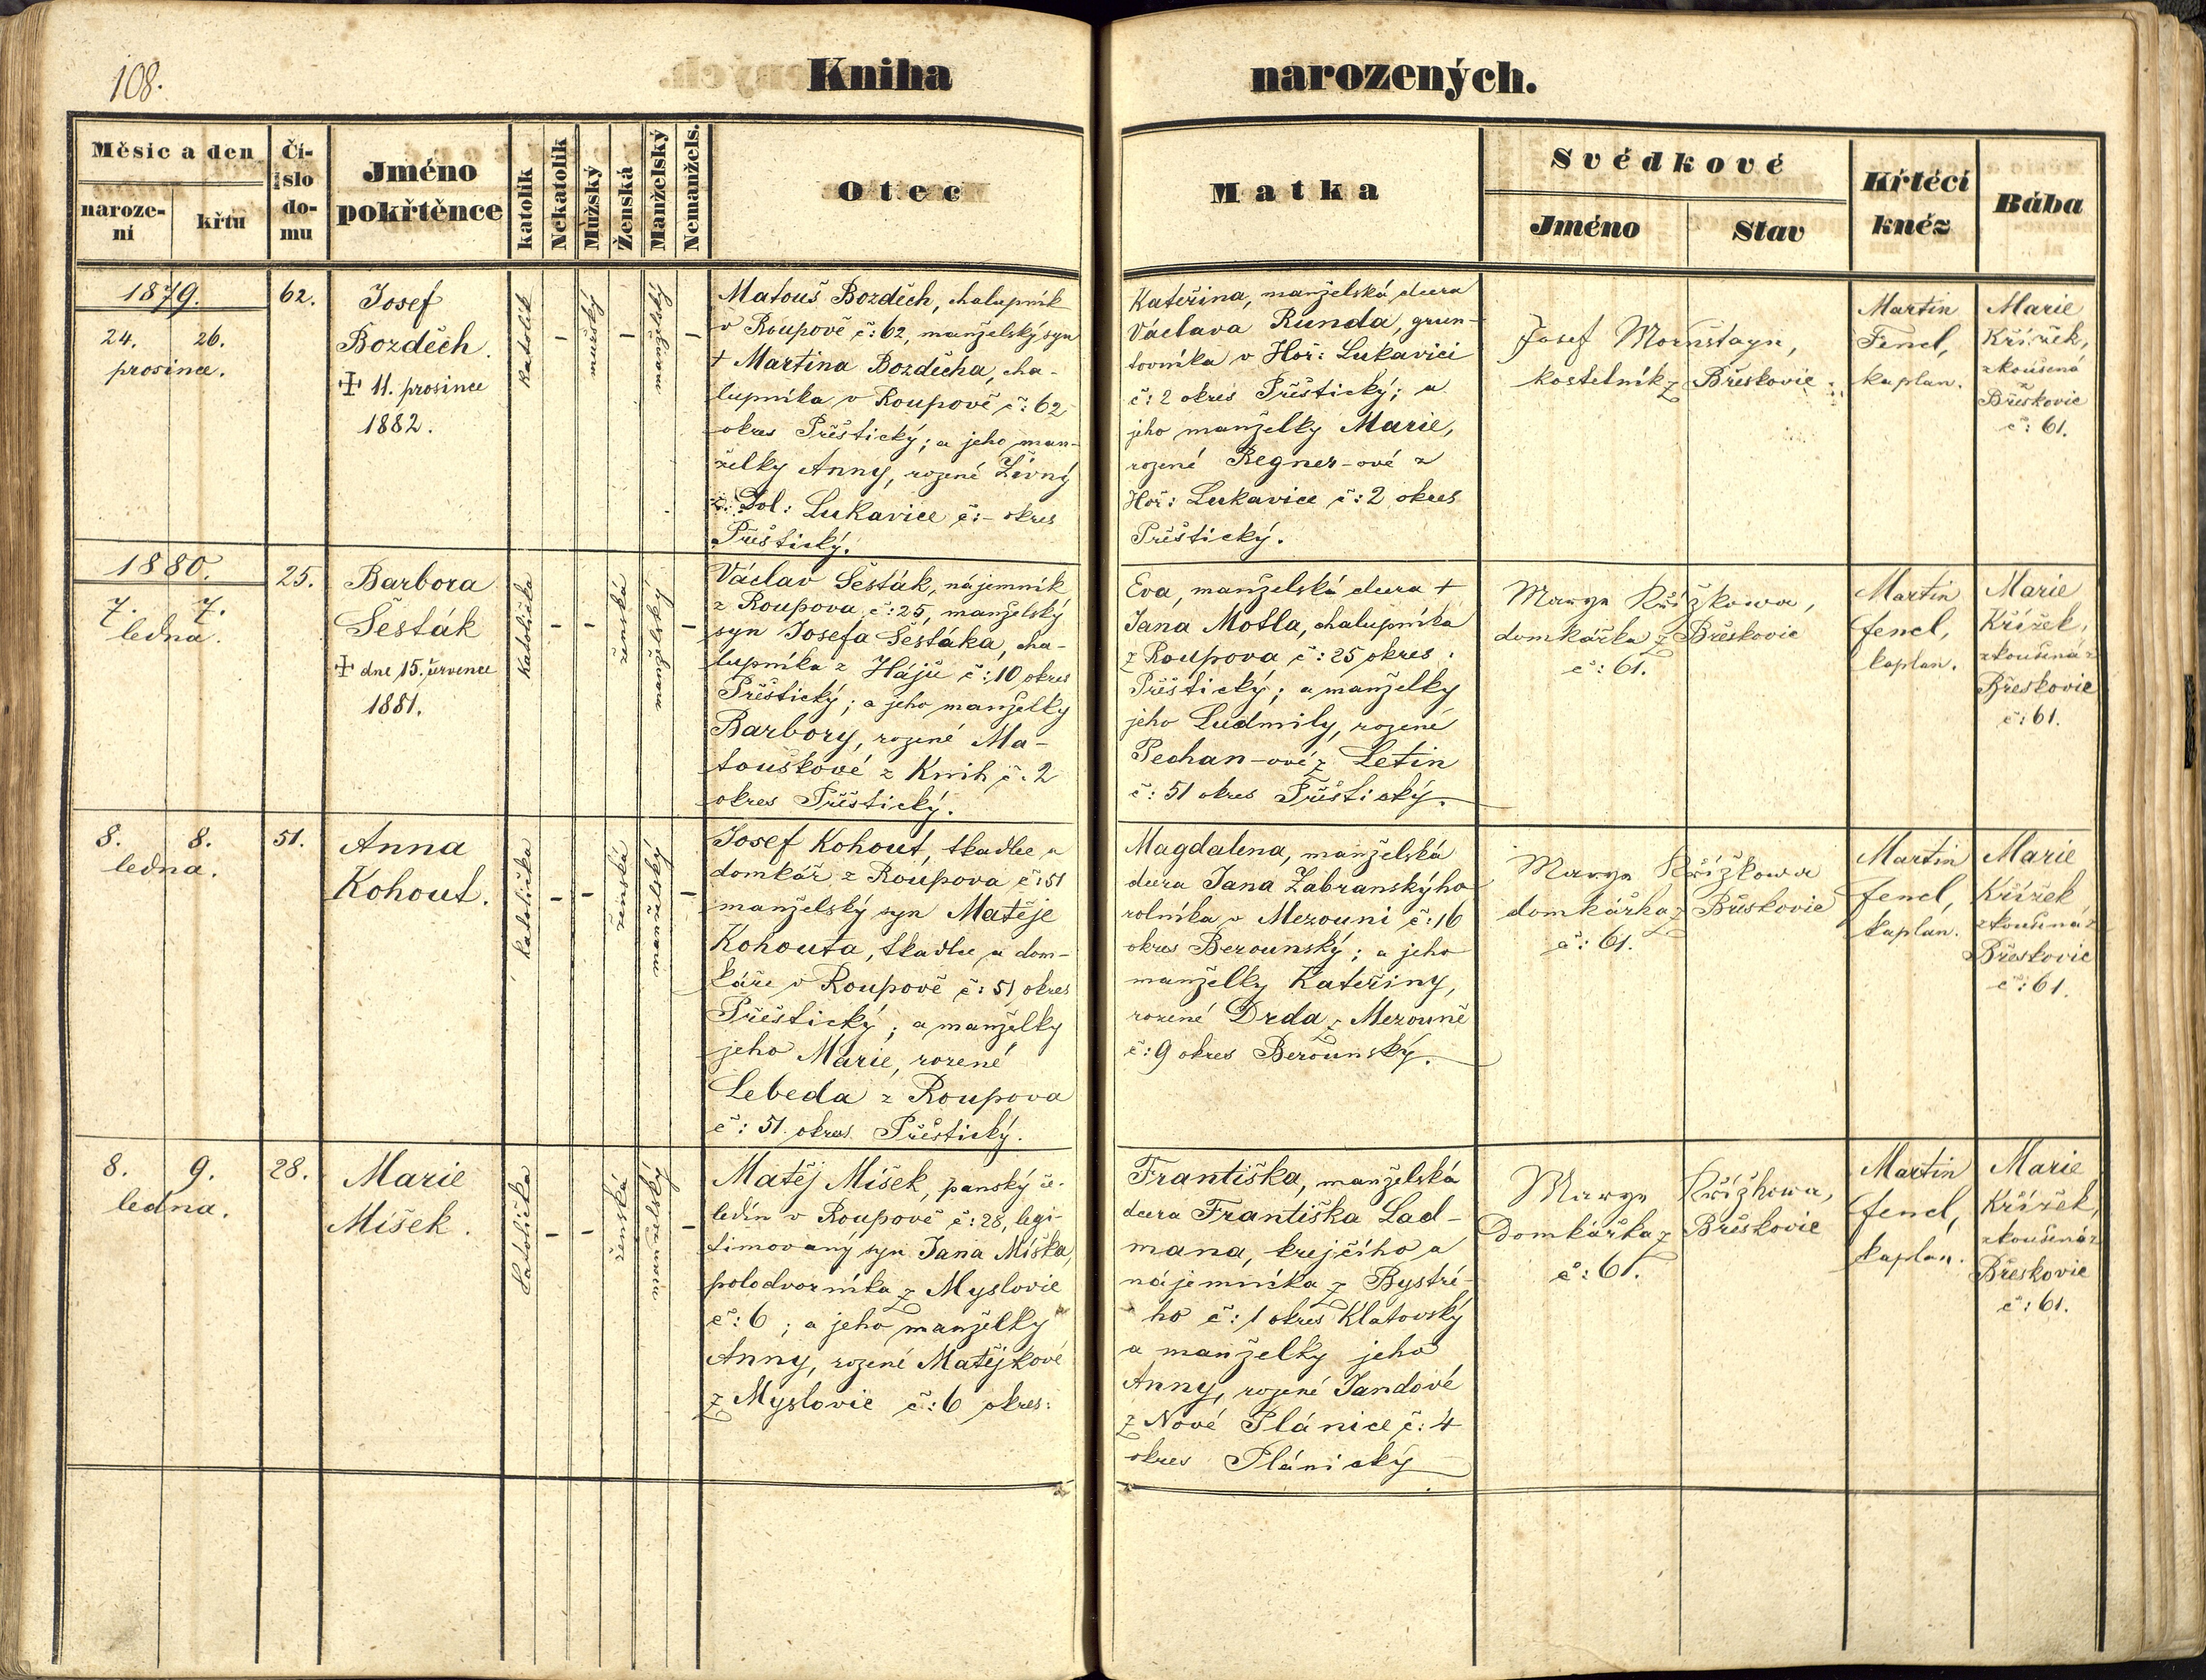 108.
Kniha narozených.
Měsíc a den
naroze-
ní
křtu
Čí-
slo
do-
mu
Jméno
pokřtěnce
katolík
Nekatolík
Mužský
Ženská
Manželský
Nemanžels.
Otec
Matka
Svědkové
Jméno
Stav
Křtécí
kněz
Bába
1879.
24. 26.
prosince.
62.
Josef
Bozděch.
✝ 11. prosince
1882.
katolík
–
mužský
–
manželský
–
Matouš Bozděch, chalupník
v Roupově č: 62, manželský syn
† Martina Bozděcha, cha-
lupníka v Roupově č: 62
okres Přeštický; a jeho man-
želky Anny, rozené Živný
z Dol: Lukavice č: – okres
Přeštický.
Kateřina, manželská dcera
Václava Runda, grun-
tovníka v Hoř: Lukavici
č: 2 okres Přeštický; a
jeho manželky Marie,
rozené Regner-ové z
Hoř: Lukavice č: 2 okres
Přeštický.
Josef Mornštayn,
kostelník z Břeskovic
Martin
Fencl,
kaplan.
Marie
Křížek,
zkoušená
z
Břeskovic
č: 61.
1880.
7. 7.
ledna.
25.
Barbora
Šesták
✝ dne 15. července
1881.
katolička
–
–
ženská
manželský
–
Václav Šesták, nájemník
z Roupova č: 25, manželský
syn Josefa Šestáka, cha-
lupníka z Hájů č: 10 okres
Přeštický; a jeho manželky
Barbory, rozené Ma-
touškové z Knih č. 2
okres Přeštický.
Eva, manželská dcera †
Jana Motla, chalupníka
z Roupova č: 25 okres
Přeštický; a manželky
jeho Ludmily, rozené
Pechan-ové z Letin
č: 51 okres Přeštický.
Marye Křížkowa,
domkářka z Břeskovic
č: 61.
Martin
fencl,
kaplan.
Marie
Křížek,
zkoušená z
Břeskovic
č: 61.
8. 8.
ledna.
51.
Anna
Kohout.
katolička
–
–
ženská
manželský
–
Josef Kohout, tkadlec a
domkář z Roupova č: 51
manželský syn Matěje
Kohouta, tkadlce a dom-
káře v Roupově č: 51 okres
Přeštický; a manželky
jeho Marie, rozené
Lebeda z Roupova
č: 51 okres Přeštický.
Magdalena, manželská
dcera Jana Zabranskýho
rolníka v Mezouni č: 16
okres Berounský; a jeho
manželky Kateřiny,
rozené Drda z Mezouně
č: 9 okres Berounský.
Marye Křížkowa
domkářka z Břeskovic
č: 61.
Martin
fencl,
kaplán.
Marie
Křížek
zkoušená z
Břeskovic
č: 61.
8. 9.
ledna.
28.
Marie
Míšek.
katolička
–
–
ženská
manželský
–
Matěj Míšek, panský če-
ledín v Roupově č: 28, legi-
timovaný syn Jana Míška,
polodvorníka z Myslovic
č: 6; a jeho manželky
Anny, rozené Matějkové
z Myslovic č: 6 okres:
Františka, manželská
dcera Františka Lad-
mana, krejčího a
nájemníka z Bystré-
ho č: 1 okres Klatovský
a manželky jeho
Anny, rozené Jandové
z Nové Plánice č: 4
okres Plánický
Marye Křížkowa,
Domkářka z Břeskovic
č: 61.
Martin
fencl,
kaplan.
Marie
Křížek,
zkoušená z
Břeskovic
č: 61.